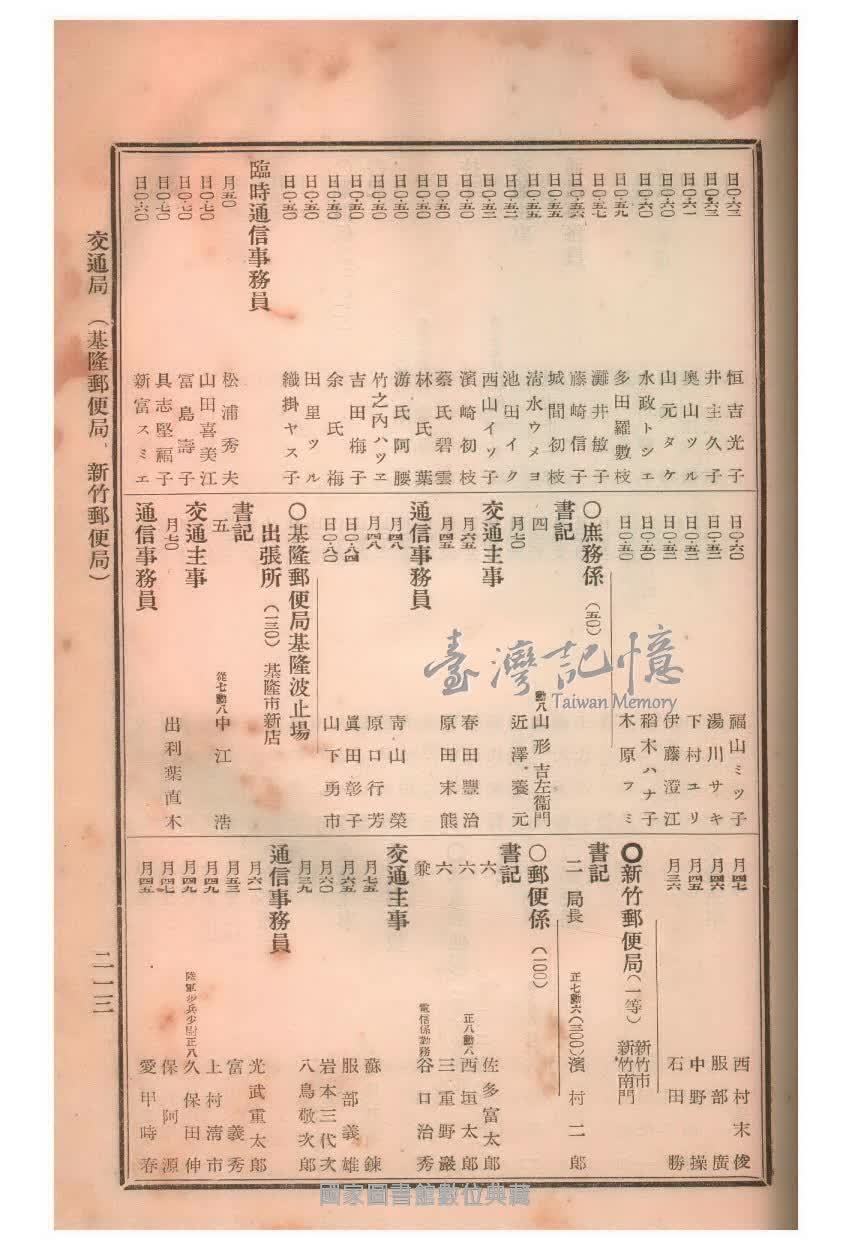 日〇・六三 恒吉光子
日〇・六三 井主久子
月〇・六一 奥山ツル
日〇・六〇 山元タケ
日〇・六〇 水政トシエ
日〇・五九 多田羅數枝
日〇・五七 灘井敏子
日〇・五六 藤崎信子
日〇・五五 城間初枝
日〇・五五 清水ウメヨ
日〇・五二 池田イク
日〇・五二 西山イツ子
日〇・五〇 濱崎初枝
日〇・五〇 蔡氏碧雲
日〇・五〇 林氏葉
日〇・五〇 游氏阿腰
日〇・五〇 竹之內ハツヱ
日〇・五〇 吉田梅子
日〇・五〇 余氏梅
日〇・五〇 田里ツル
日〇・五〇 織掛ヤス子
臨時通信事務員
月五〇 松浦秀夫
日〇・七〇 山田喜美江
日〇・七〇 富島壽子
日〇・七〇 具志堅福子
日〇・六〇 新富スミエ
日〇・六〇 福山ミツ子
日〇・五二 湯川サキ
日〇・五二 下村ユリ
日〇・五二 伊藤澄江
日〇・五〇 稻木ハナ子
日〇・五〇 木原フミ
〇庶務係(五〇)
書記
四 勳八 山形吉左衞門
月七〇 近澤養元
交通主事
月六五 春田豐治
月四五 原田末熊
通信事務員
月四八 青山榮
月四八 原口行芳
日〇・八四 眞田彰子
日〇・八〇 山下勇市
〇基隆郵便局基隆波止場
出張所(一三〇)基隆市新店
書記
五 從七勳八 中江浩
交通主事
月七〇 出利葉直木
通信事務員
月四七 西村末俊
月四六 服部廣
月四五 中野操
月三六 石田勝
〇新竹郵便局(一等)新竹市
新竹南門
書記
二 局長 正七勳六(三〇〇)濱村二郎
〇郵便係(一〇〇)
書記
六 佐多富太郎
六 正八勳六 西垣太郎
六 三重野巖
兼 電信係勤務 谷口治秀
交通主事
月七五 蘇鍊
月六五 服部義雄
月六〇 岩本三代次
月三九 八鳥敬次郎
通信事務員
月六一 光武重太郎
月五三 富義秀
月四九 上村清市
月四九 陸軍步兵少尉正八 久保田伸
月四七 保阿源
月四五 愛甲時春
交通局(基隆郵便局、新竹郵便局)
二一三
臺灣記憶
Taiwan Memory
國家圖書館數位典藏